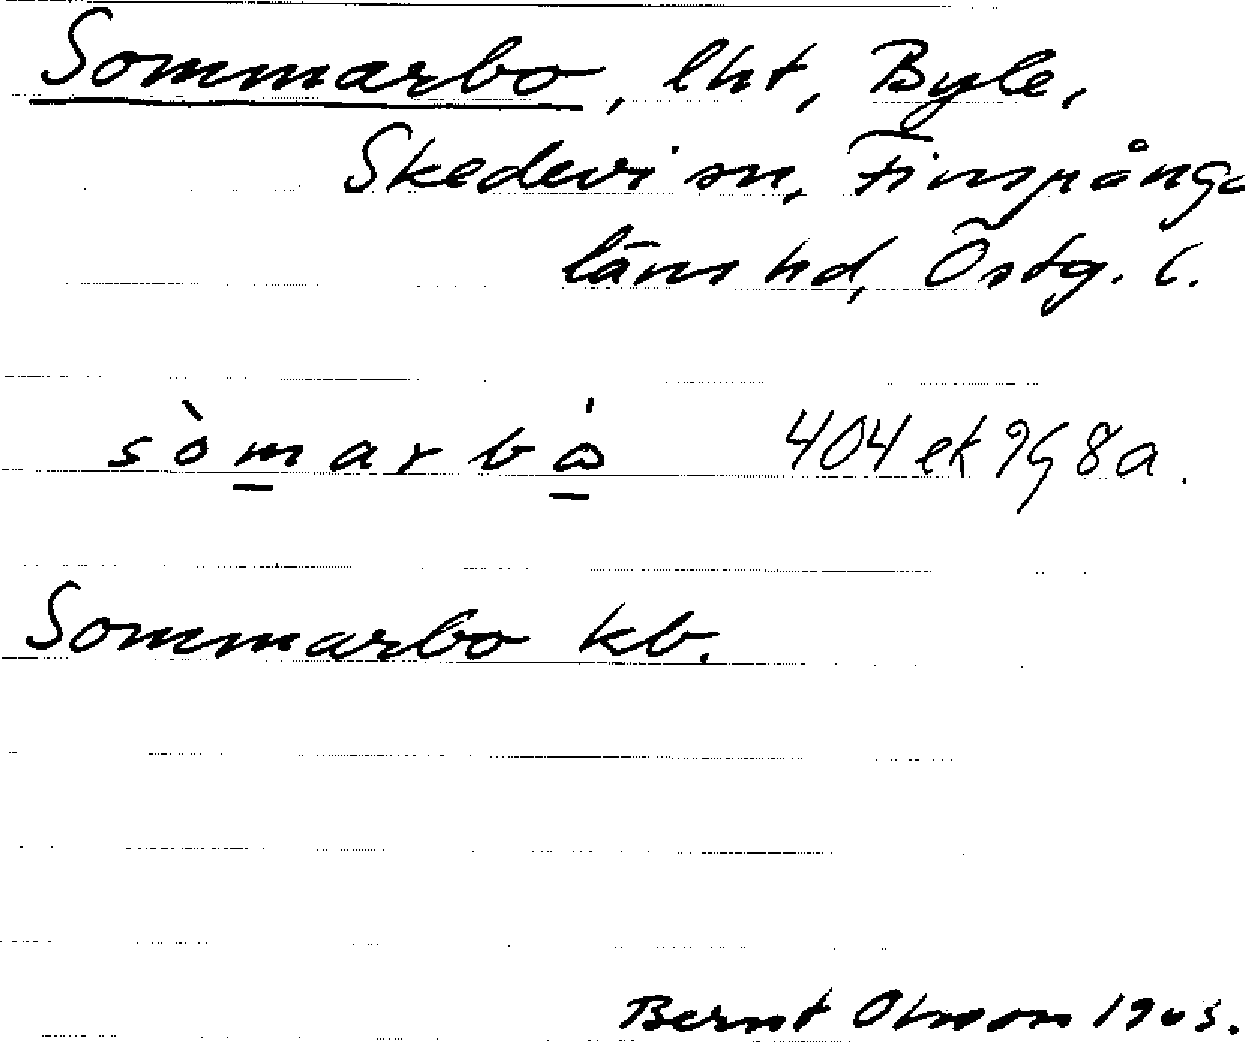 Sommarbo, lht, Byle,
Skedevi sn, Finspånga
läns hd, Östg. l.
sòmarbå̀ 404 ek 9G 8a.
Sommarbo kb.
Bernt Olsson 1963.